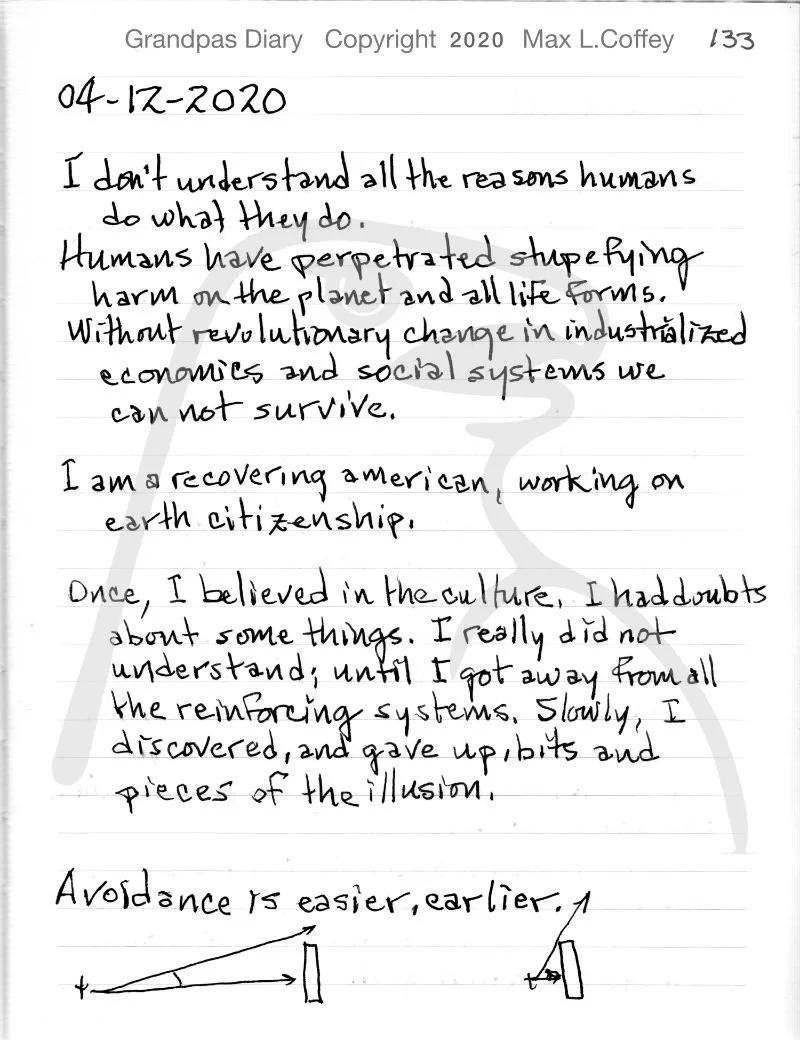 Grandpas Diary Copyright 2020 Max L.Coffey 133
04-12-2020
I don't understand all the reasons humans
do what they do.
Humans have perpetrated stupefying
harm on the planet and all life forms.
Without revolutionary change in industrialized
economics and social systems we
can not survive.
I am a recovering american, working on
earth citizenship.
Once, I believed in the culture. I had doubts
about some things. I really did not
understand; until I got away from all
the reinforcing systems. Slowly, I
discovered, and gave up, bits and
pieces of the illusion.
Avoidance is easier, earlier.